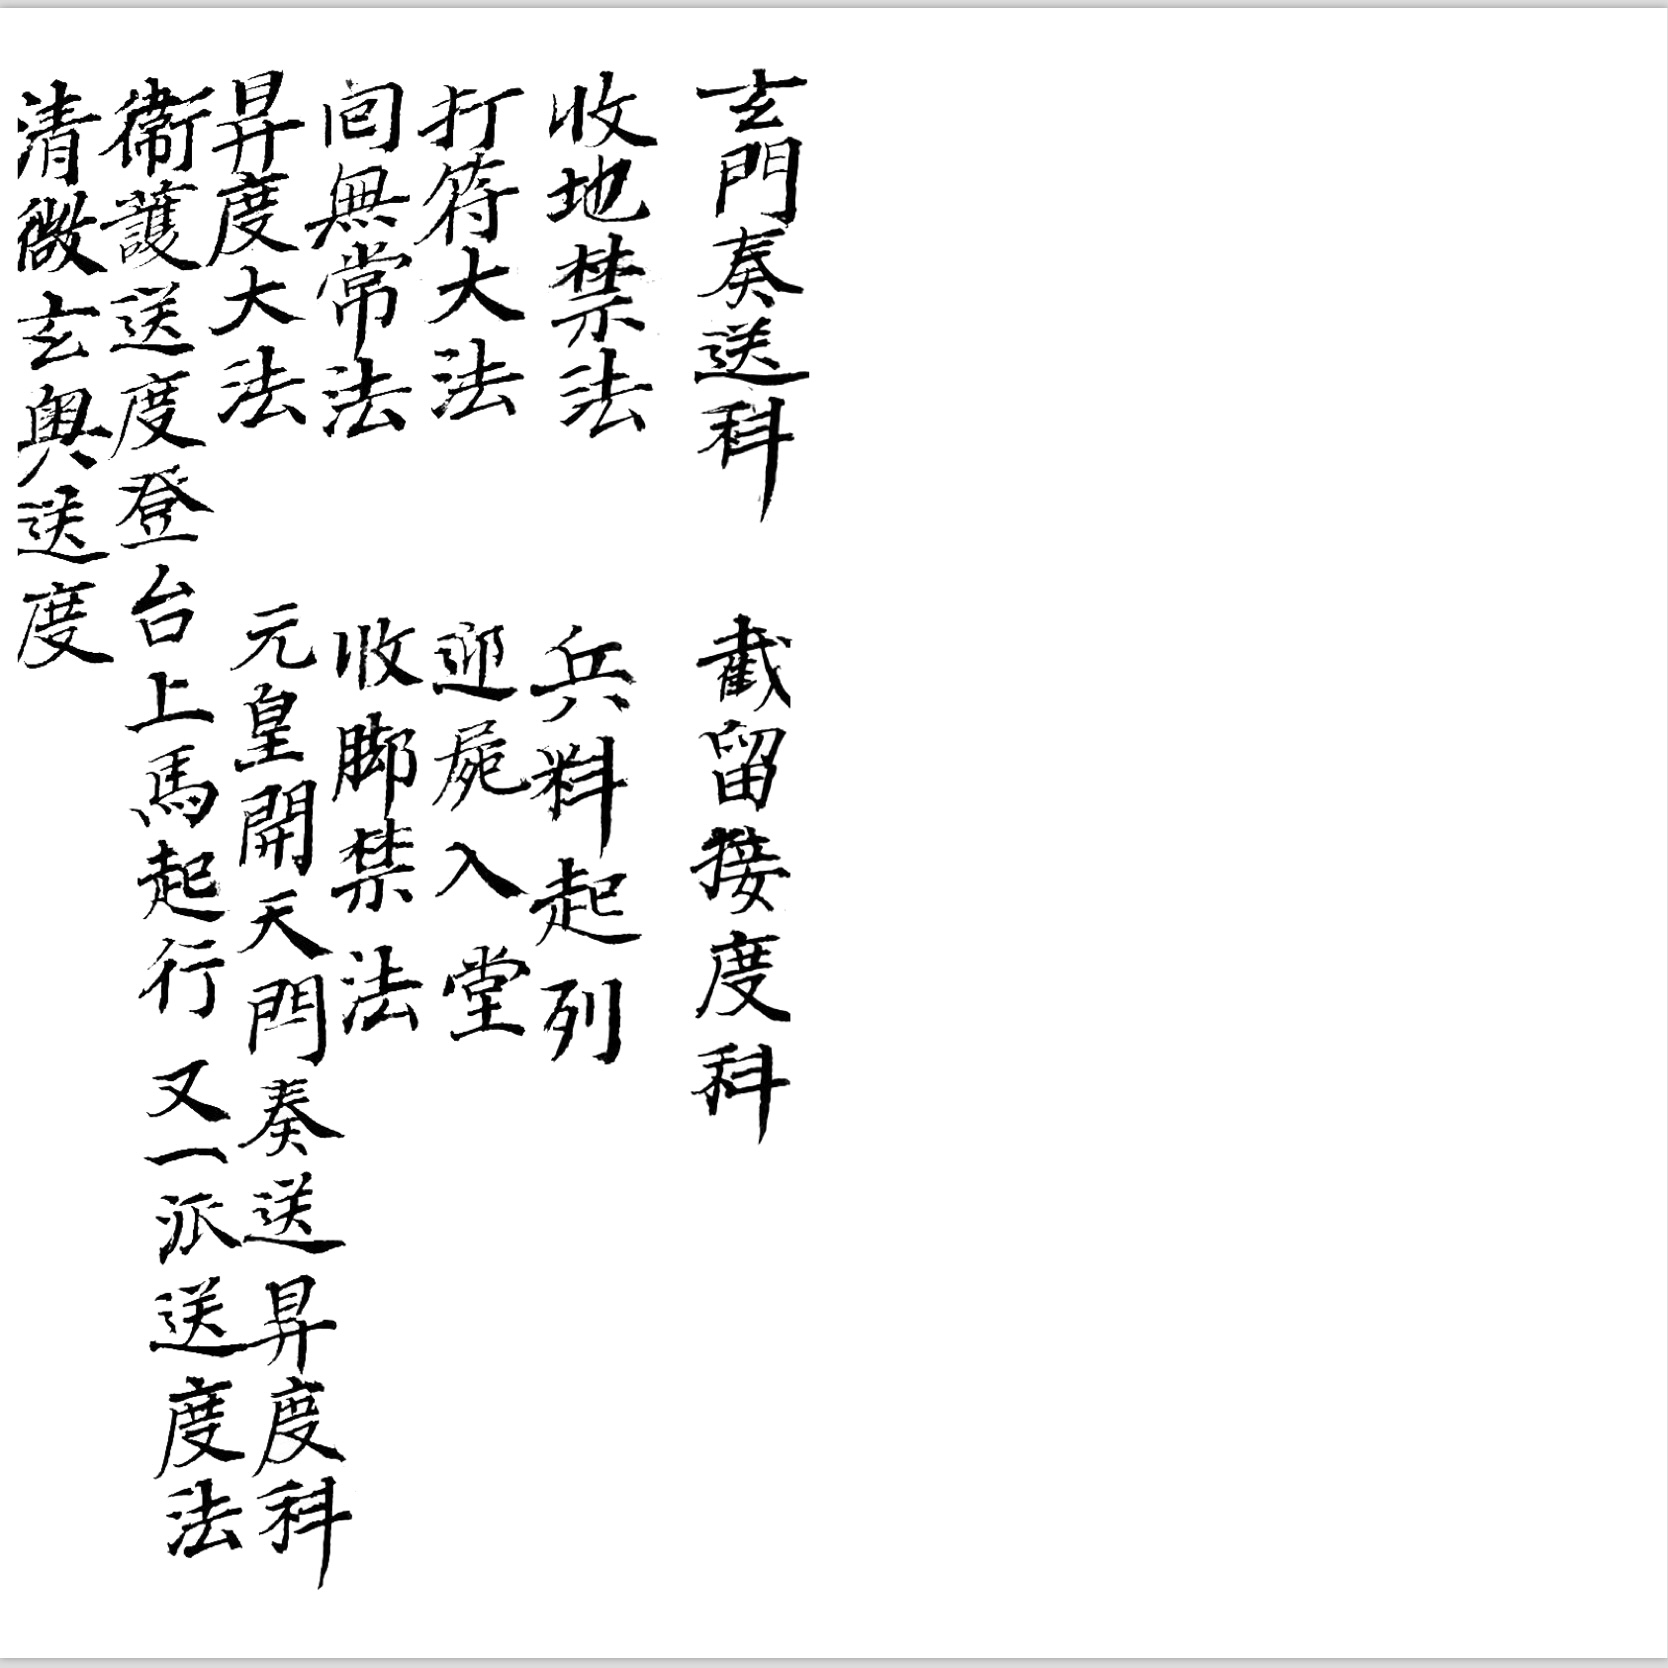 玄門奏送科　截留接度科
收地禁法　兵料起列
打符大法　迎屍入堂
回無常法　收脚禁法
昇度大法　元皇開天門奏送昇度科
衞護送度登台上馬起行　又一派送度法
清微玄奥送度